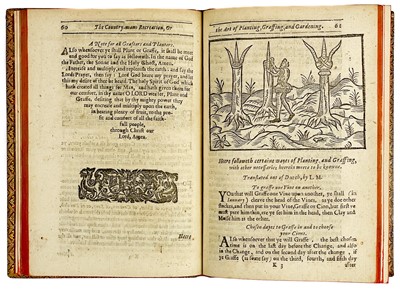 60
The Country-mans Recreation, &c
A Note for all Graffers and Planters.
ALso whensoever ye shall Plant or Graffe, it shall be meet
and good for you to say as followeth. In the name of God
the Father, the Sonne and the Holy Ghost, Amen.
Encrease and multiply, and replenish the earth: and say the
Lords Prayer, then say: Lord God heare my prayer, and let
this my desire of thee be heard. The holy Spirit of God which
hath created all things for Man, and hath given them for
our comfort, in thy name O LORD we set, Plant and
Graffe, desiring that by thy mighty power they
may encrease and multiply upon the earth,
in bearing plenty of fruit, to the pro-
fit and comfort of all thy faith-
full people,
through Christ our
Lord, Amen.
Heere
the Art of Planting, Graffing, and Gardening.
61
Heere followeth certaine wayes of Planting, and Graffing,
with other necessaries heerein meete to be knowne.
Translated out of Dutch, by L. M.
To graffe one Vine on another.
YOu that will Graffe one Vine upon another, ye shall (in
January) cleave the head of the Vines, as ye doe other
Stockes, and then put in your Vine, Graffe or Cion, but first ye
must pare him thin, ere ye set him in the head, then Clay and
Mosse him as the other.
Chosen dayes to Graffe in and to choose
your Cions.
ALso whensoever that ye will Graffe, the best chosen
time is on the last day before the Change, and also
in the Change, and on the second day after the change, if
ye Graffe (as some say) on the third, fourth, and fifth day
K 3
after